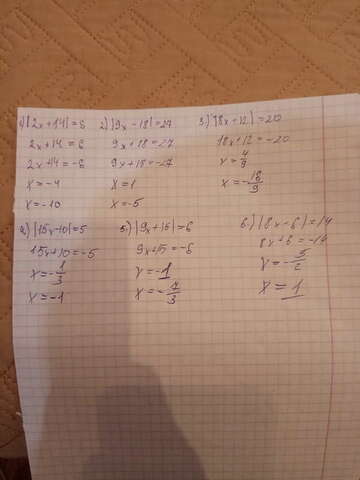 1) |2x+14|=6
2x+14=6
2x+14=-6
x=-4
x=-10
2) |9x-18|=27
9x+18=27
9x+18=-27
x=1
x=-5
3.) |18x+12|=20
18x+12=-20
x=4/9
x=-16/9
4) |15x-10|=5
15x+10=-5
x=-1/3
x=-1
5) |9x+15|=6
9x+15=-6
x=-1
x=-7/3
6.) |8x-6|=14
8x+6=-14
x=-5/2
x=1